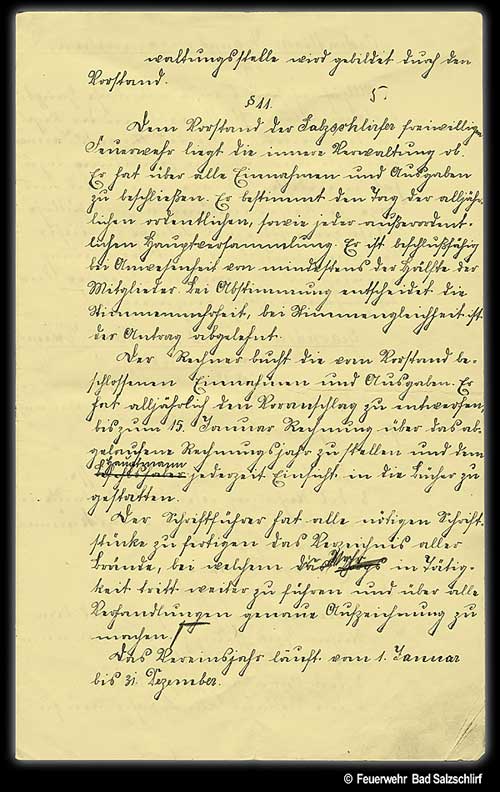 waltungsstelle wird gebildet durch den
Vorstand.
§ 11.
5.
Dem Vorstand der Salzschlirfer freiwillige
Feuerwehr liegt die innere Verwaltung ob.
Er hat über alle Einnahmen und Ausgaben
zu beschließen. Er bestimmt den Tag der alljähr-
lichen ordentlichen, sowie jeder außerordent-
lichen Hauptversammlung. Er ist beschlußfähig
bei Anwesenheit von mindestens der Hälfte der
Mitglieder. Bei Abstimmung entscheidet die
Stimmenmehrheit, bei Stimmengleichheit ist
der Antrag abgelehnt.
Der Rechner bucht die vom Vorstand be-
schlossenen Einnahmen und Ausgaben. Er
hat alljährlich den Voranschlag zu entwerfen,
bis zum 15. Januar Rechnung über das ab-
gelaufene Rechnungsjahr zu stellen und dem
Hauptmann
jederzeit Einsicht in die Bücher zu
gestatten.
Der Schriftführer hat alle nötigen Schrift-
stücke zu fertigen das Verzeichnis aller
Brände, bei welchem die Wehr in Tätig-
keit tritt weiter zu führen und über alle
Verhandlungen genaue Aufzeichnung zu
machen.
Das Vereinsjahr läuft vom 1. Januar
bis 31. Dezember.
© Feuerwehr Bad Salzschlirf